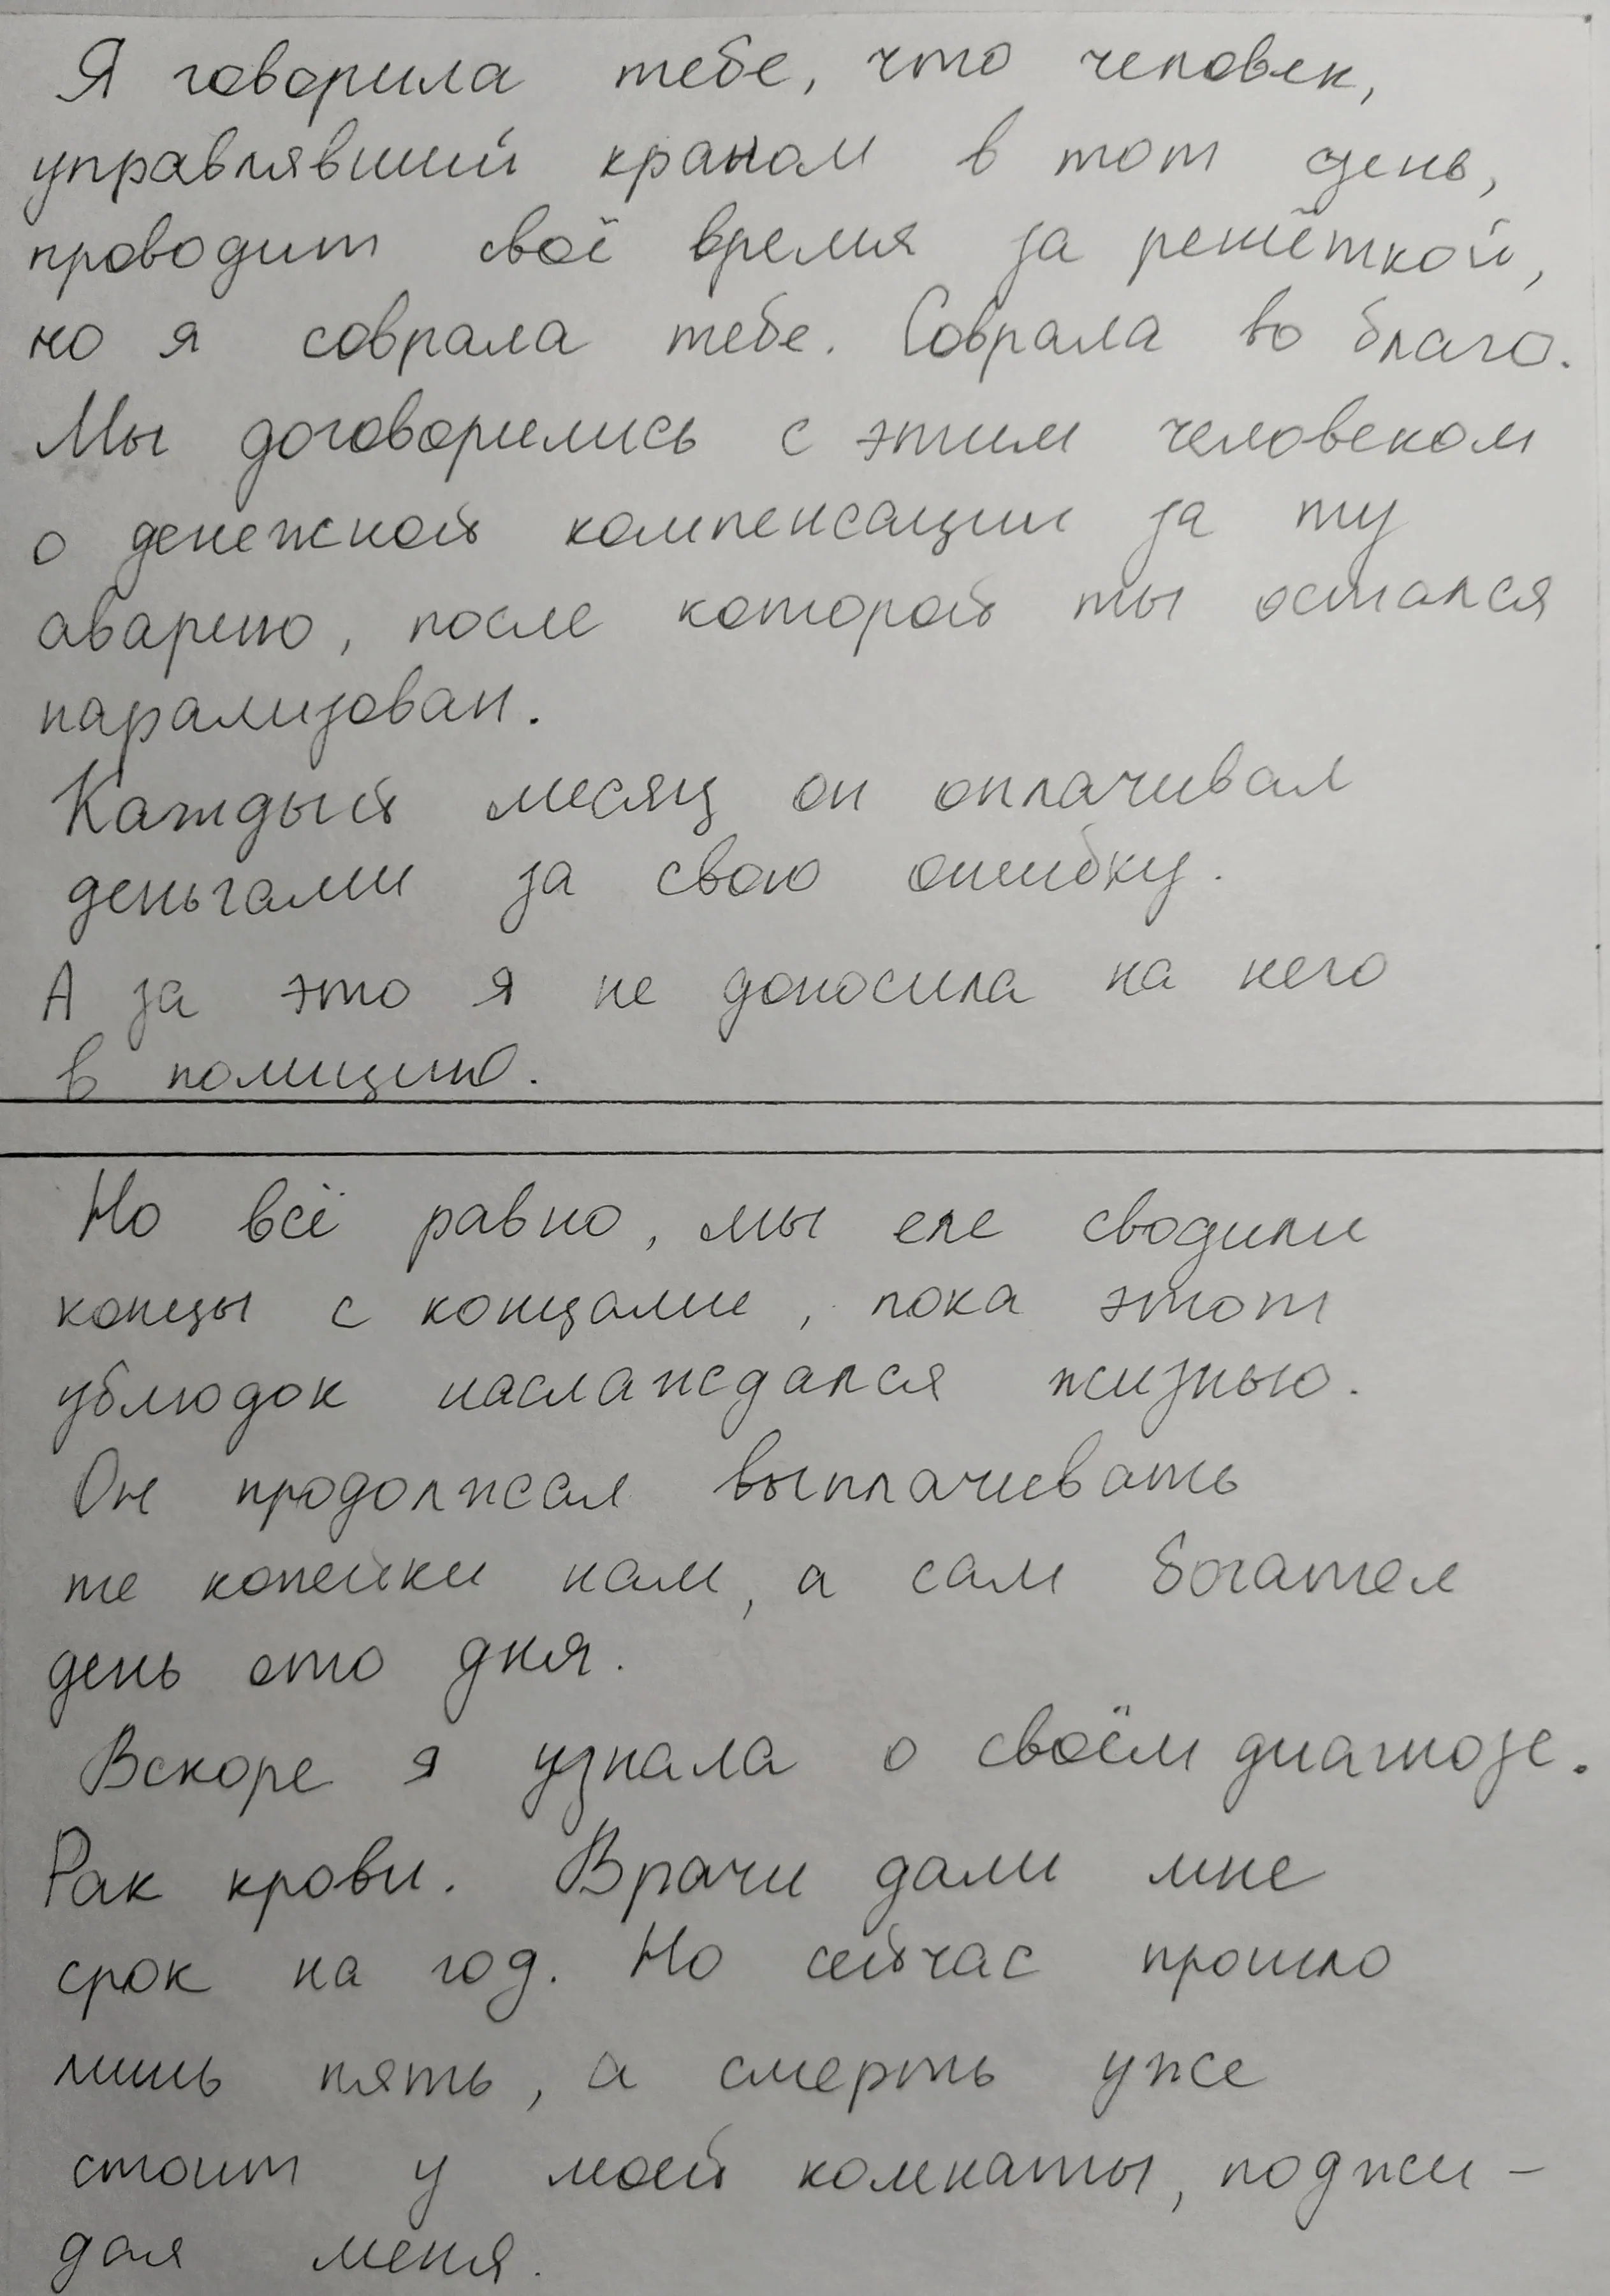 Я говорила тебе, что человек,
управлявший краном в тот день,
проводит своё время за решёткой,
но я соврала тебе. Соврала во благо.
Мы договорились с этим человеком
о денежной компенсации за ту
аварию, после которой ты остался
парализован.
Каждый месяц он оплачивал
деньгами за свою ошибку.
А за это я не доносила на него
в полицию.
Но всё равно, мы еле сводили
концы с концами, пока этот
ублюдок наслаждался жизнью.
Он продолжал выплачивать
те копейки нам, а сам богател
день ото дня.
Вскоре я узнала о своём диагнозе.
Рак крови. Врачи дали мне
срок на год. Но сейчас прошло
лишь пять, а смерть уже
стоит у моей комнаты, поджи-
дая меня.